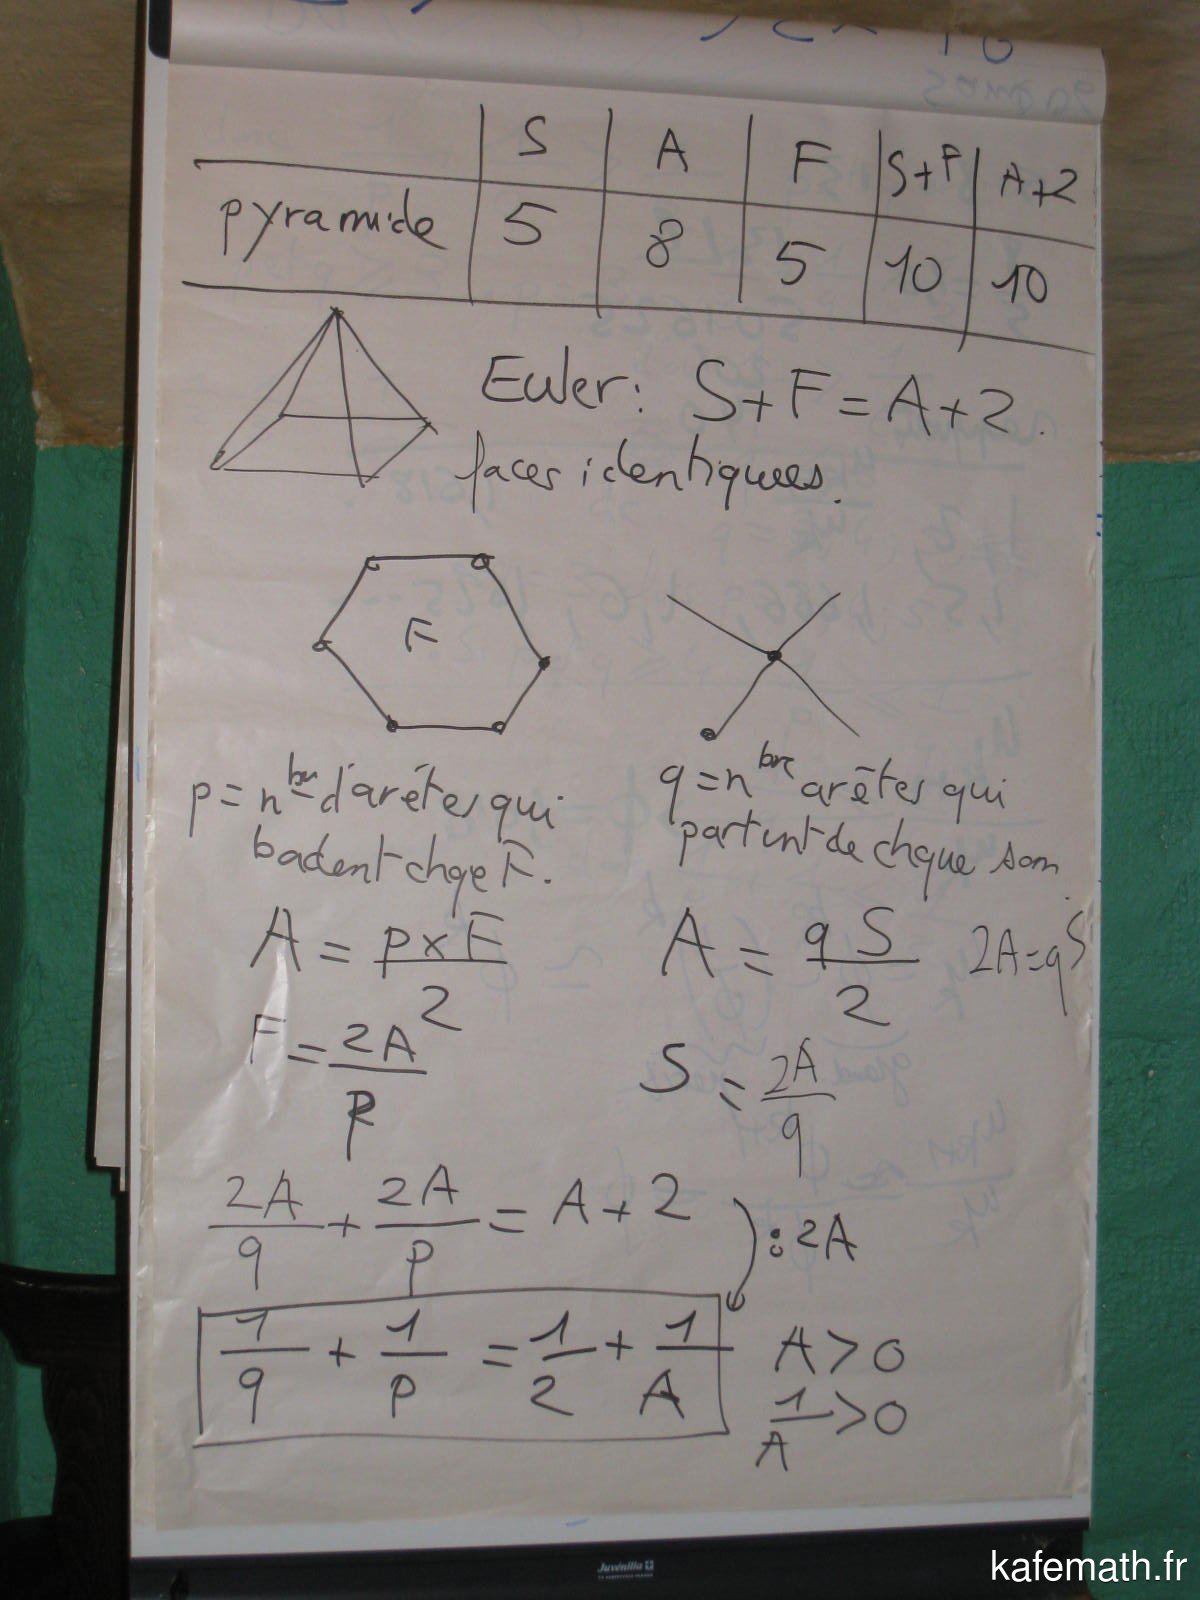 S A F S+F A+2
pyramide 5 8 5 10 10
Euler: S+F=A+2.
faces identiques.
F
p=n^bre d'arêtes qui
bordent chqe F.
q=n^bre arêtes qui
partent de chque som.
A = p×F/2
A = qS/2 2A=qS
F = 2A/p
S = 2A/q
2A/q + 2A/p = A+2
:2A
1/q + 1/p = 1/2 + 1/A
A>0
1/A>0
Juvénilia
kafemath.fr